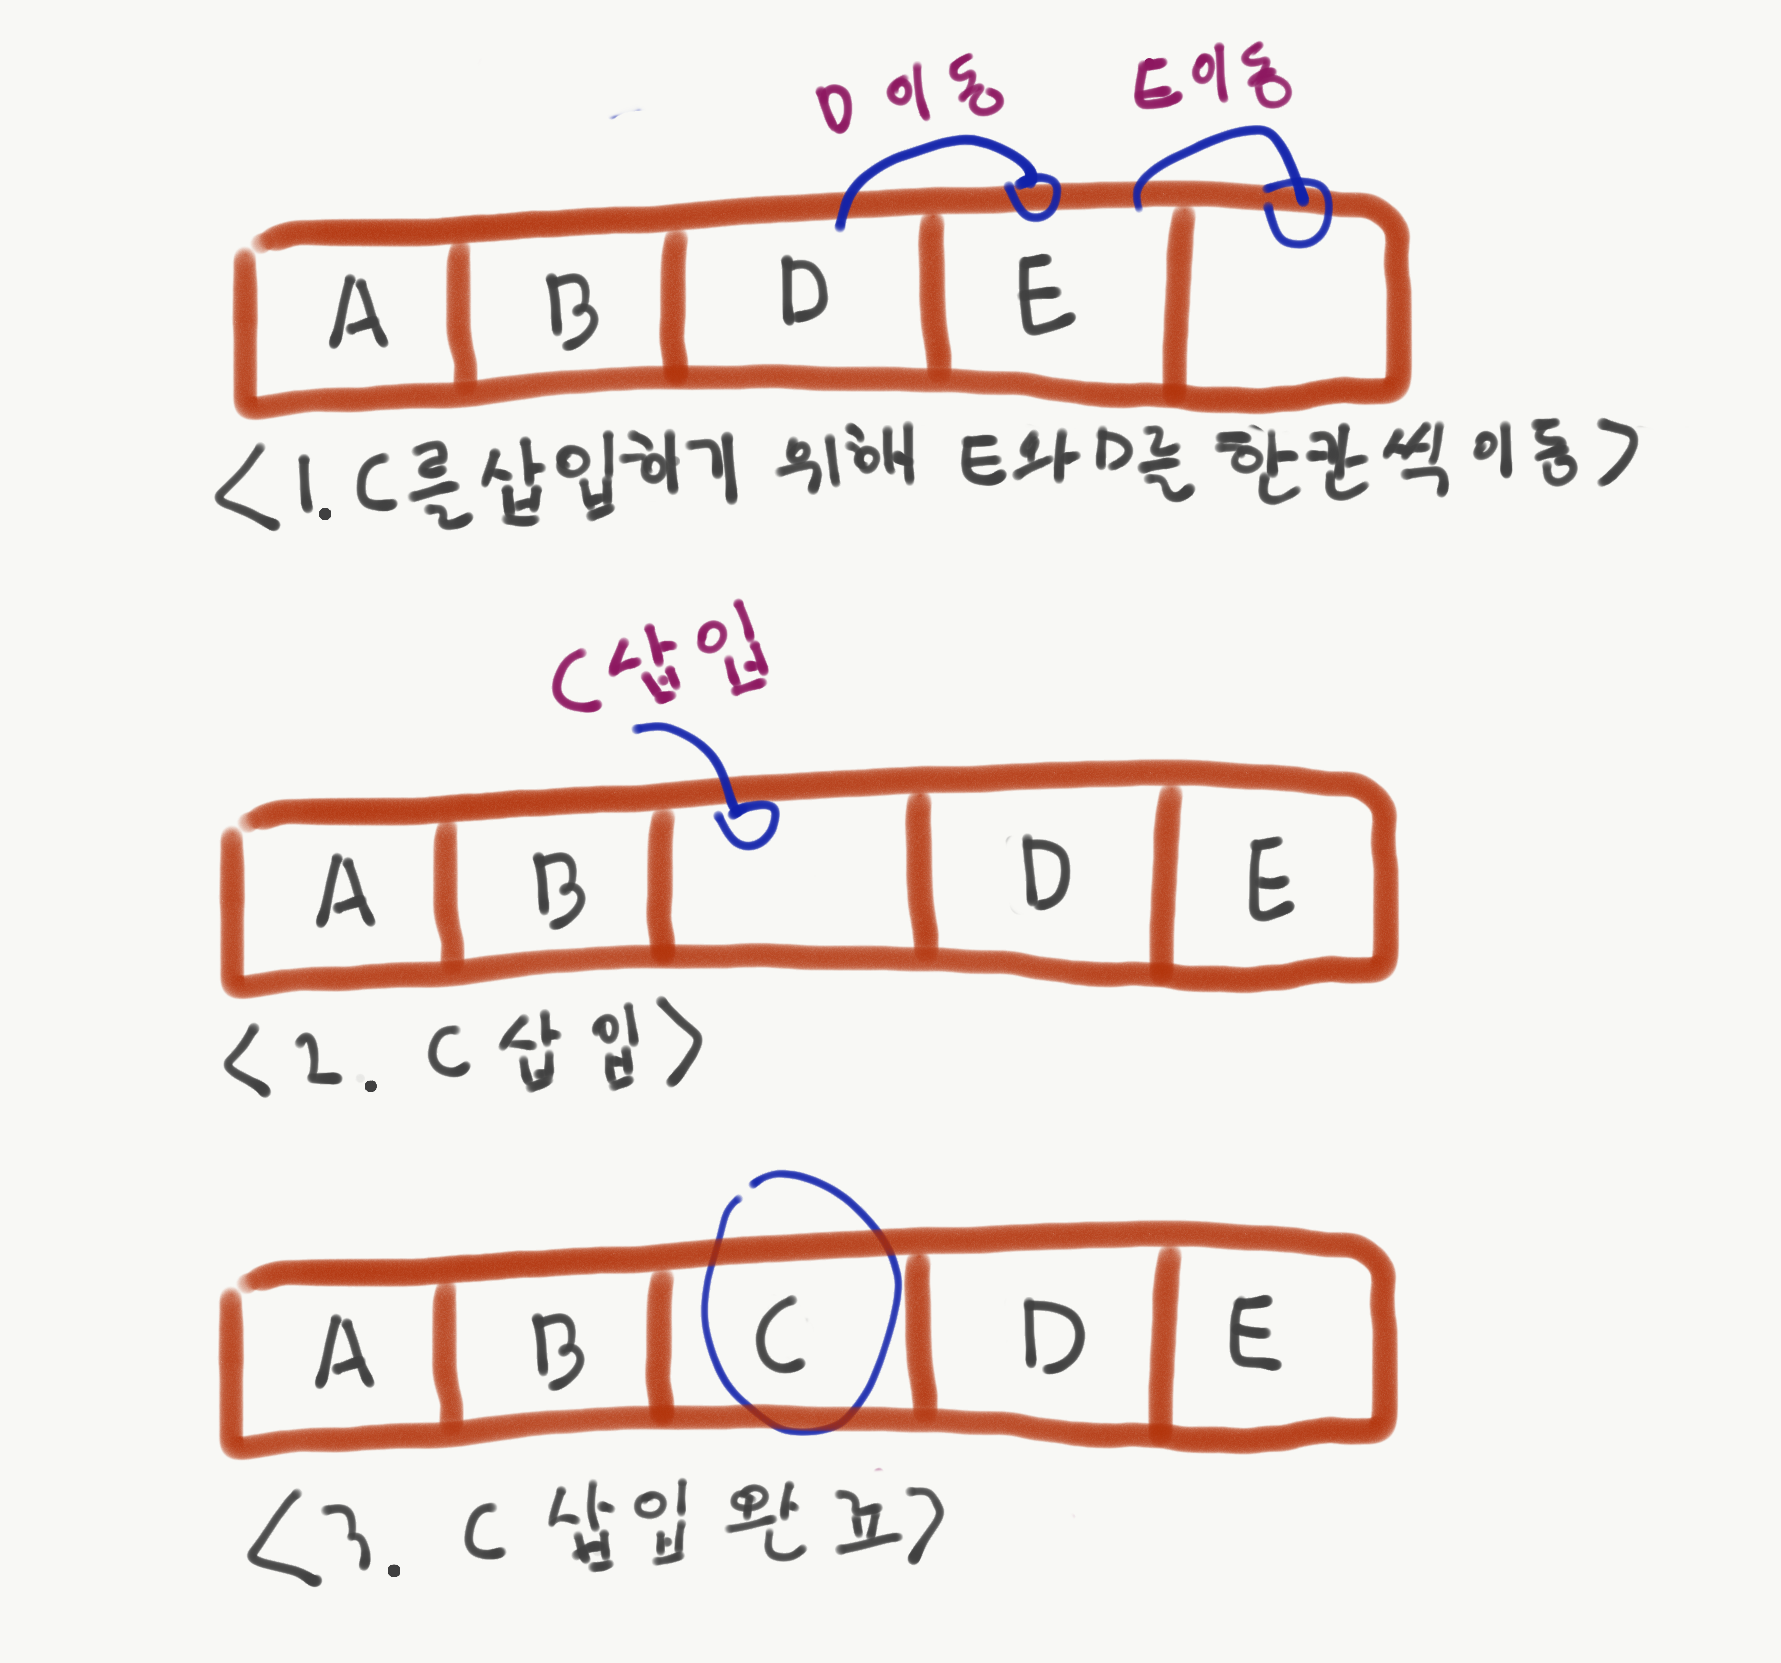 D 이동 E이동
A B D E
<1. C를 삽입하기 위해 E와 D를 한칸씩 이동>
C삽입
A B D E
<2. C 삽입>
A B C D E
<3. C 삽입 완료>